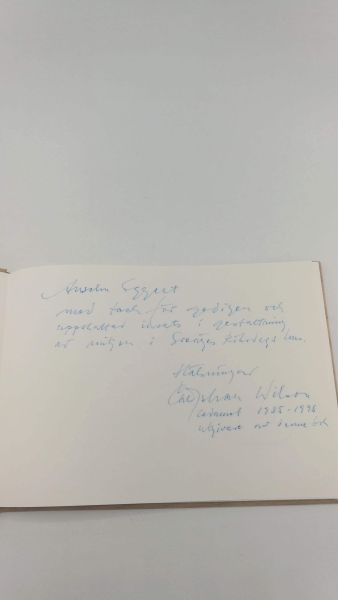 Anselm Eggert
med tack för gedigen och
uppskattad insats i gestaltning
av miljön i Sveriges Riksdags hus.
Hälsningar
Wilson
1988-1998
utgivare av denna bok